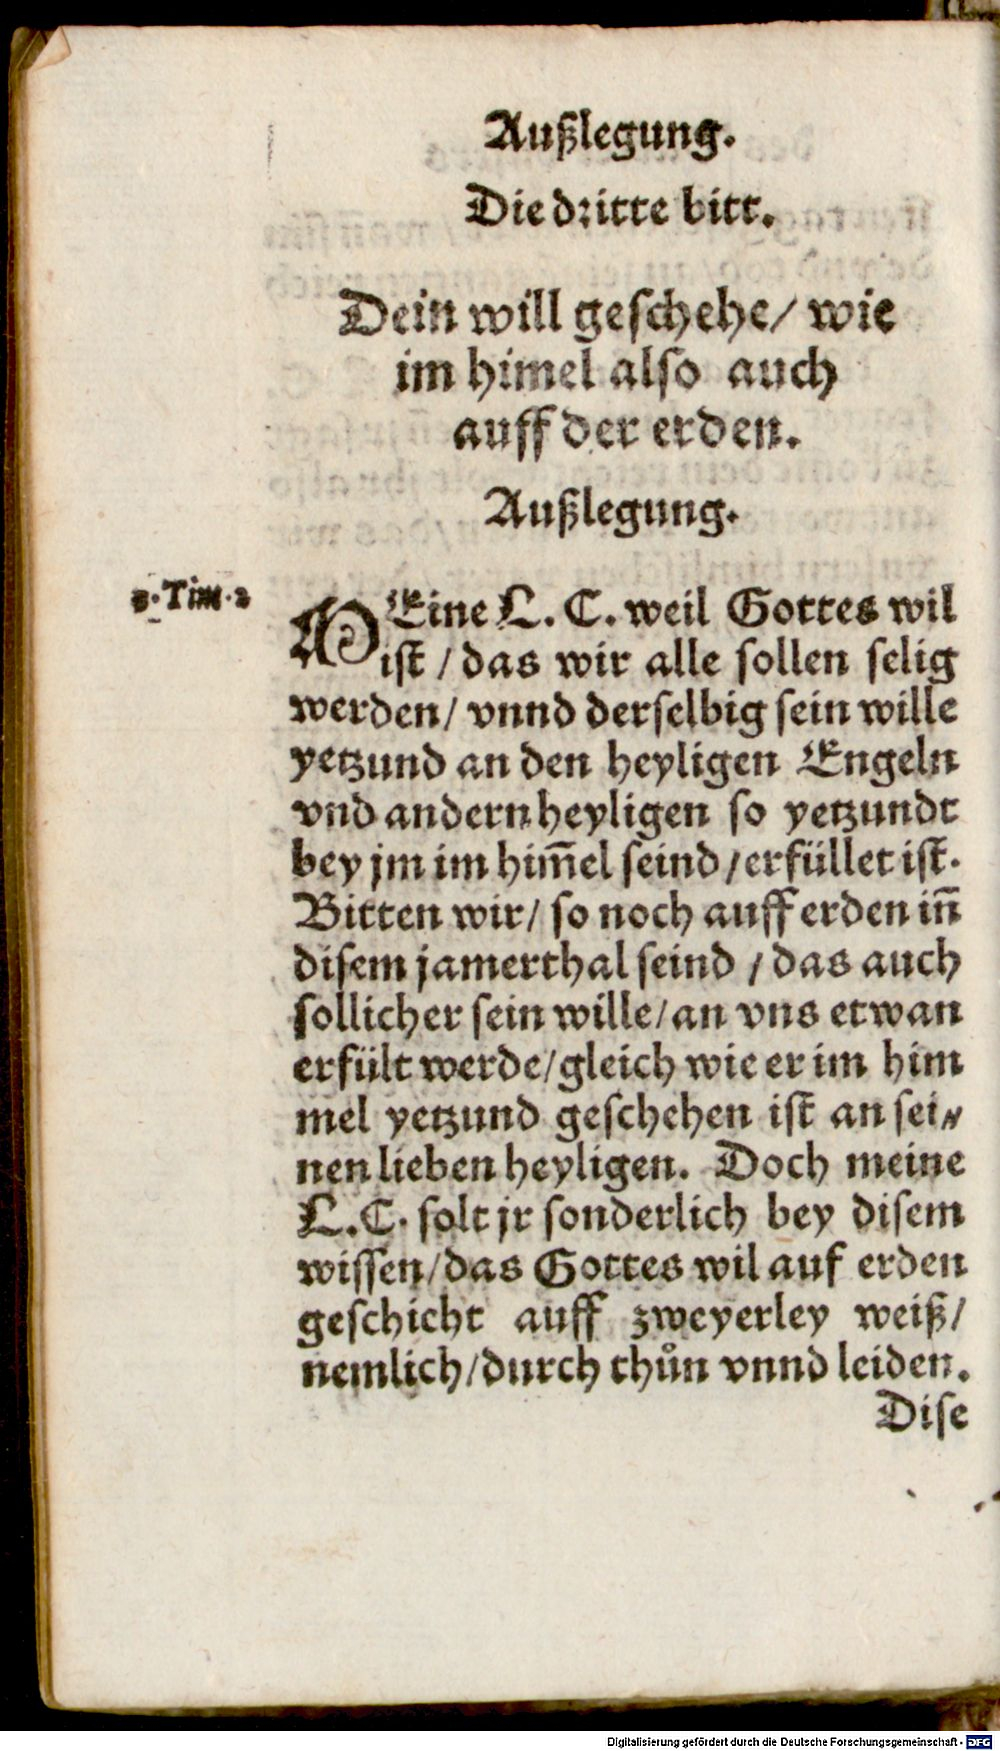 Außlegung.
Die dritte bitt.
Dein will geschehe/ wie
im himel also auch
auff der erden.
Außlegung.
1. Tim. 2
MEine L. C. weil Gottes wil
ist / das wir alle sollen selig
werden/ vnnd derselbig sein wille
yetzund an den heyligen Engeln
vnd andern heyligen so yetzundt
bey jm im him̄el seind / erfüllet ist.
Bitten wir/ so noch auff erden in̄
disem jamerthal seind / das auch
sollicher sein wille/ an vns etwan
erfült werde/ gleich wie er im him
mel yetzund geschehen ist an sei⸗
nen lieben heyligen. Doch meine
L. C. solt jr sonderlich bey disem
wissen/ das Gottes wil auf erden
geschicht auff zweyerley weiß/
nemlich/ durch thůn vnnd leiden.
Dise
Digitalisierung gefördert durch die Deutsche Forschungsgemeinschaft - DFG